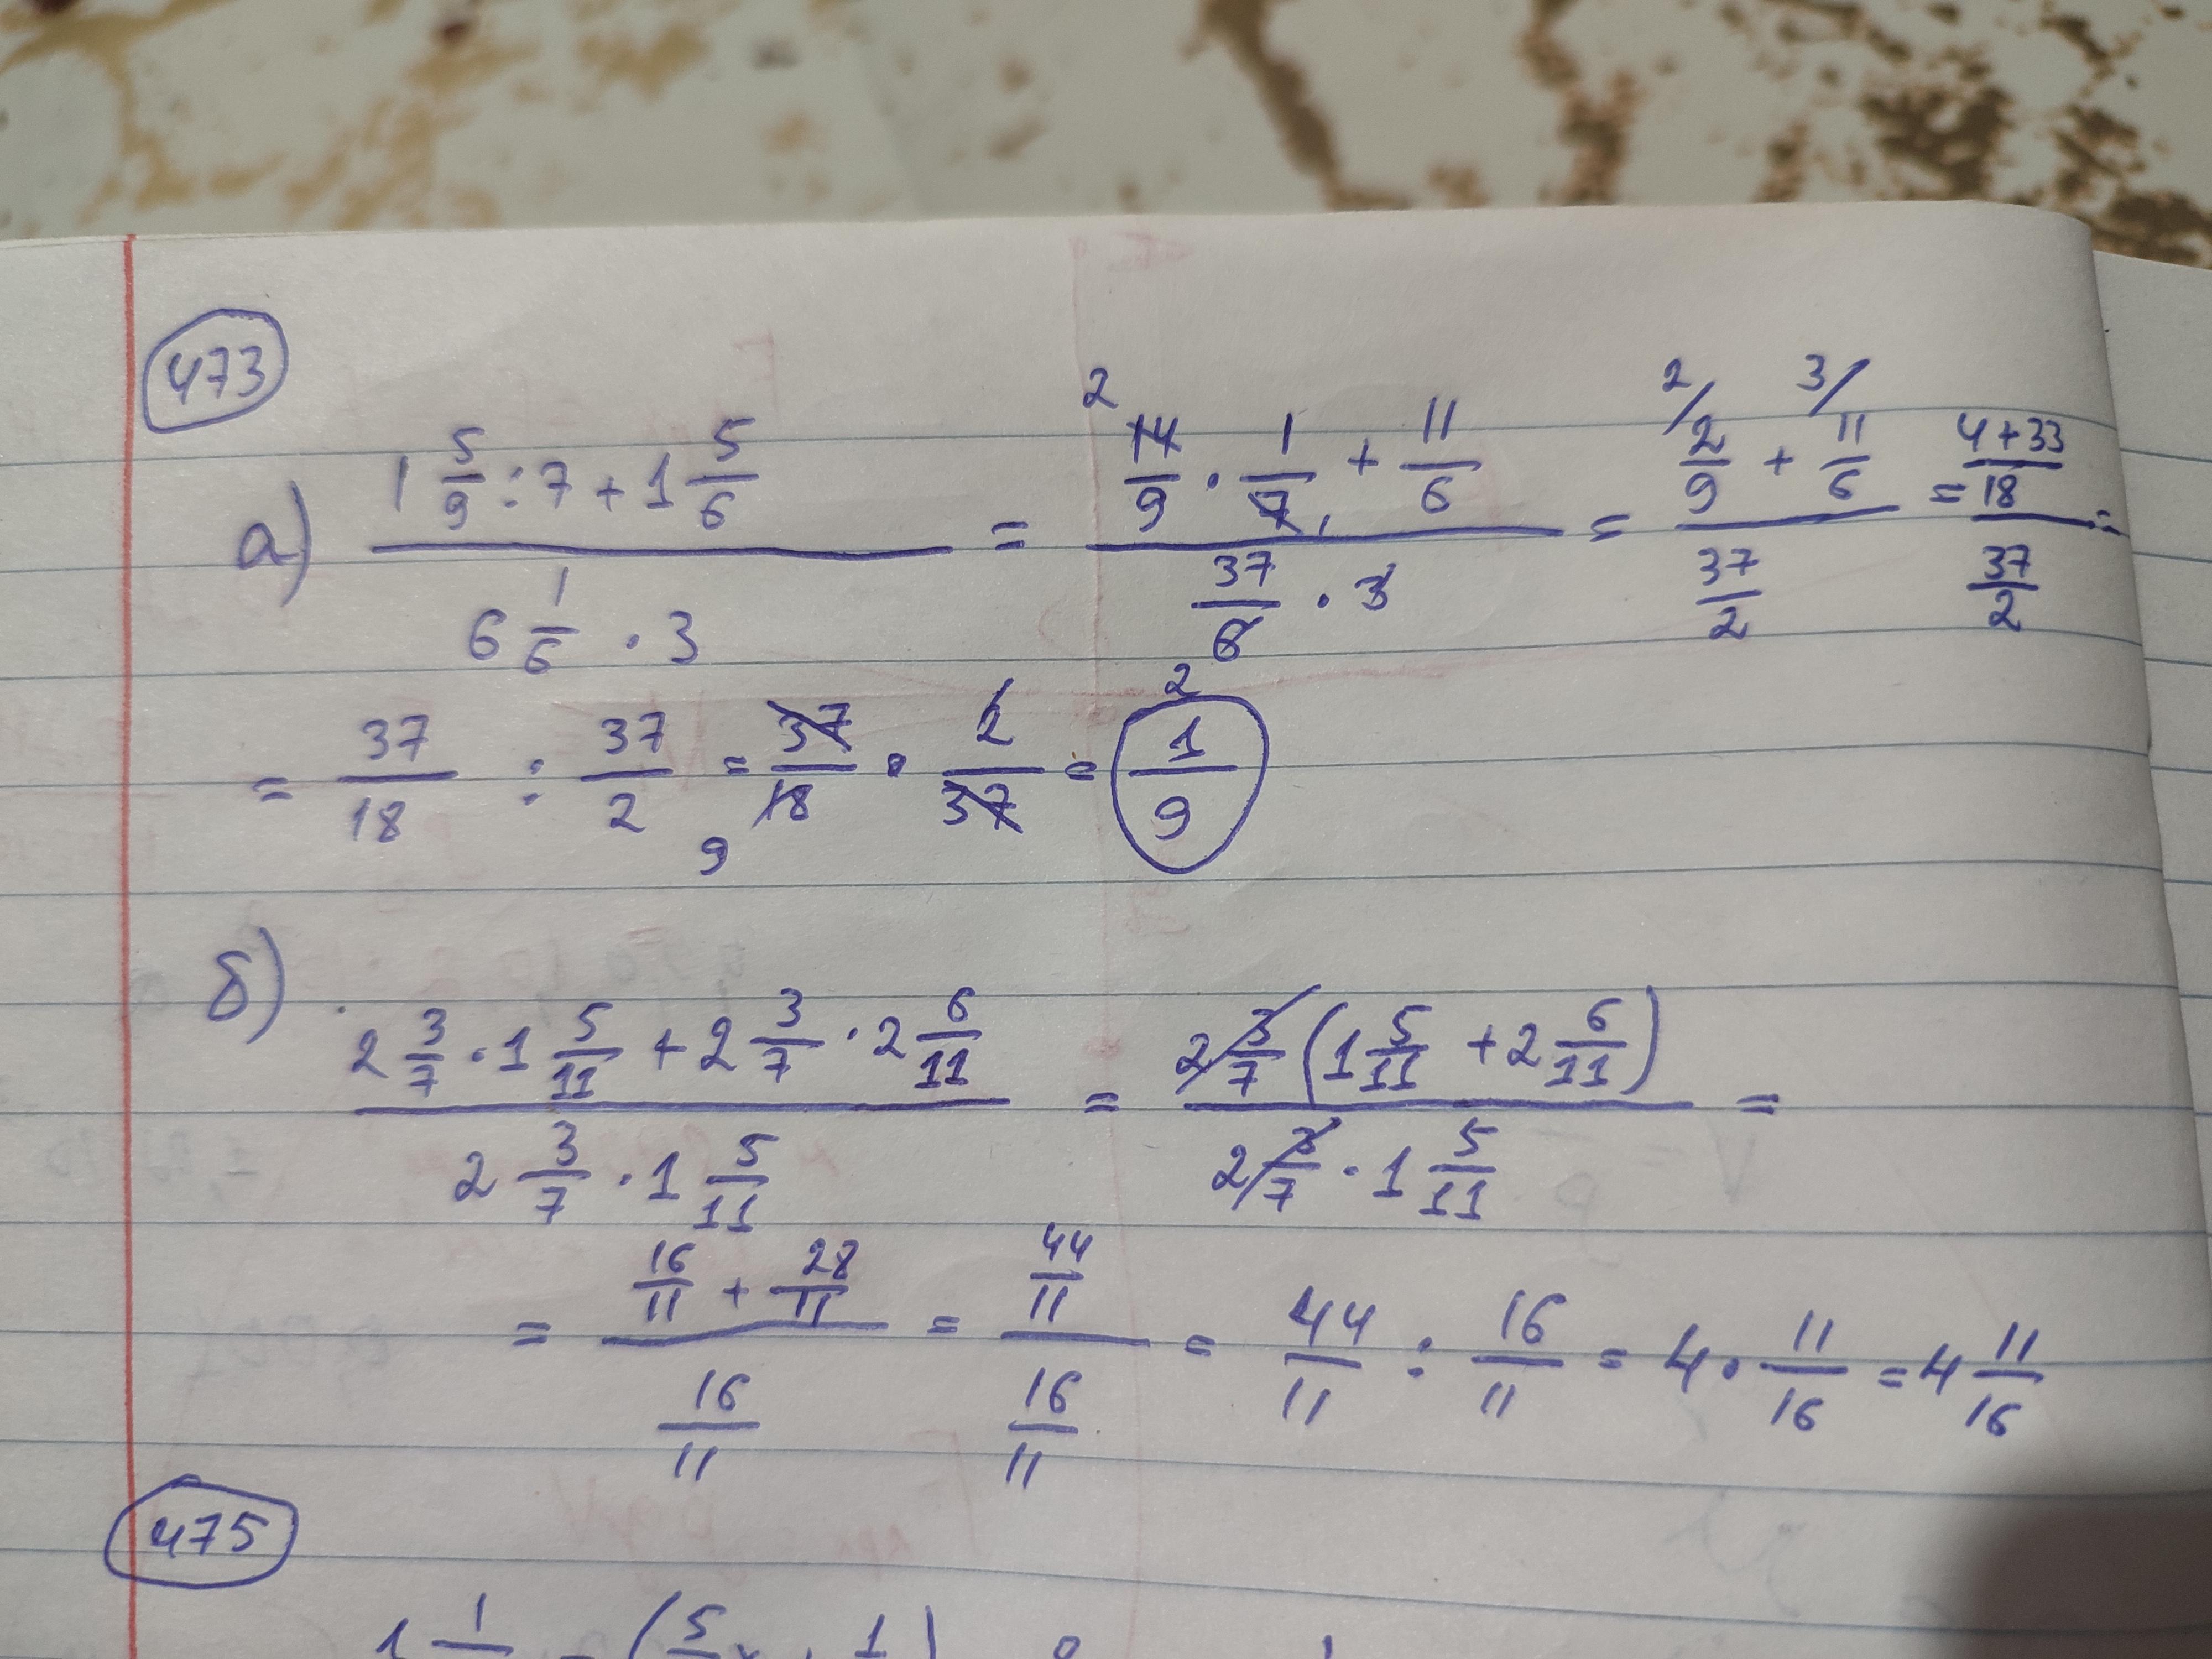 473
а) (1 5/9 : 7 + 1 5/6) / (6 1/6 · 3) = (14/9 · 1/7 + 11/6) / (37/6 · 3) = (2/9 + 11/6) / (37/2) = ((4+33)/18) / (37/2) =
= 37/18 : 37/2 = 37/18 · 2/37 = 1/9
б) (2 3/7 · 1 5/11 + 2 3/7 · 2 6/11) / (2 3/7 · 1 5/11) = (2 3/7 (1 5/11 + 2 6/11)) / (2 3/7 · 1 5/11) =
= (16/11 + 28/11) / (16/11) = (44/11) / (16/11) = 44/11 : 16/11 = 4 · 11/16 = 4 11/16
475